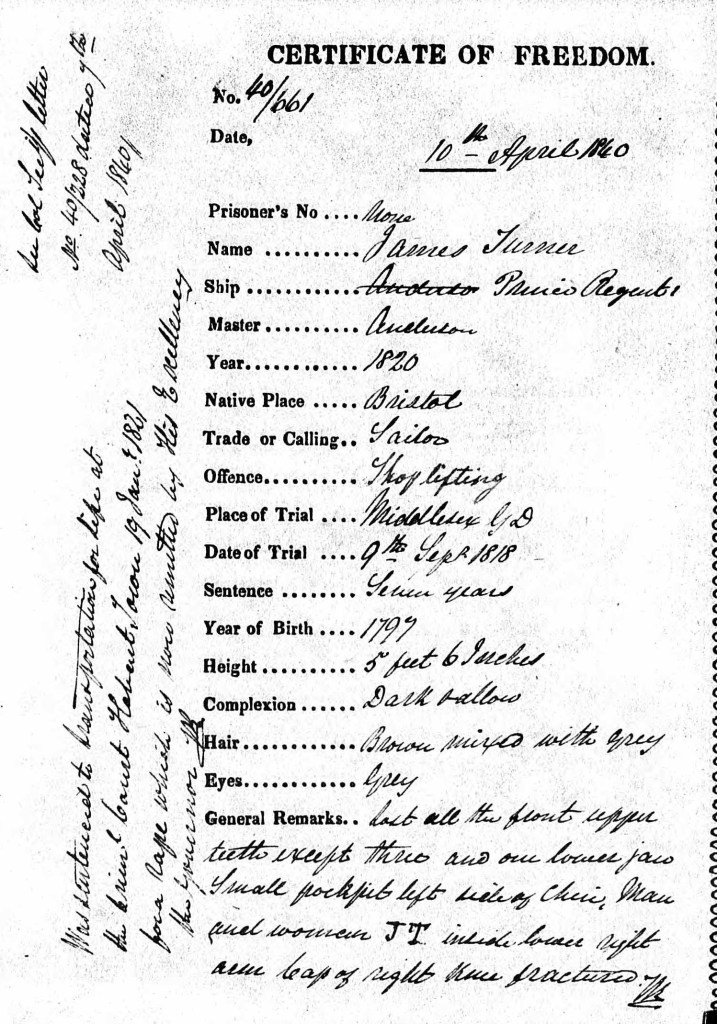 CERTIFICATE OF FREEDOM.
No. 40/661
Date,
10th April 1840
Prisoner's No .... None
Name .......... James Turner
Ship ............ Anderson Prince Regent
Master .......... Anderson
Year ............ 1820
Native Place ..... Bristol
Trade or Calling.. Sailor
Offence.......... Shop lifting
Place of Trial .... Middlesex G D
Date of Trial .... 9th Sepr 1818
Sentence ......... Seven years
Year of Birth .... 1797
Height ........... 5 feet 6 Inches
Complexion ...... Dark sallow
Hair............. Brown mixed with grey
Eyes............ Grey
General Remarks.. Lost all the front upper
teeth except three and one lower jaw
Small pockpit left side of Chin, Man
and woman JT inside lower right
arm Cap of right knee fractured.
Was sentenced to transportation for life at
the Criml Court Hobart Town 19 Jany 1821
for a rape which is now remitted by His Excellency
the Governor
Col Secys letter
No 40/228 dated 9th
April 1840